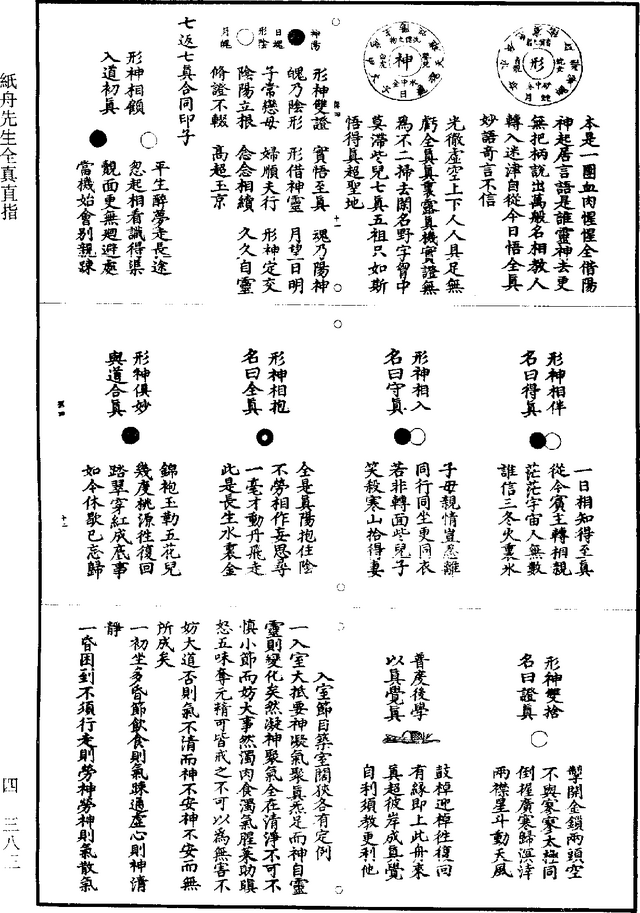 本是一團血肉惺惺全借陽
神起居言語是誰靈神去更
無把柄說出萬般名相教人
轉入迷津自從今日悟全真
妙語奇言不信
形
神
光徹虛空上下人人具足無
虧全真真裏露真機實證無
為不二掃去閑名野字習中
莫滯些兒七真五祖只如斯
悟得真超聖地
神陽
日魂
形陰
月魄
形神雙證　實悟至真　魂乃陽神
魄乃陰形　形借神靈　月望日明
子常戀母　婦順夫行　形神定交
陰陽立根　念念相續　久久自靈
脩證不輟　高超玉京
七返七真合同印子
形神相顧
入道初真
平生醉夢走長途
忽起相看識得渠
覿面更無迴避處
當機始會別親踈
形神相伴
名曰得真
一日相知得至真
從今賓主轉相親
茫茫宇宙人無數
誰信三冬火裏氷
形神相入
名曰守真
子母親情豈忍離
同行同坐更同衣
若非轉面些兒子
笑殺寒山拾得妻
形神相抱
名曰全真
全是真陽抱住陰
不勞相作妄思尋
一毫才動丹飛走
此是長生水裏金
形神俱妙
與道合真
錦袍玉勒五花兒
幾度桃源往復回
踏翠穿紅成底事
如今休歇已忘歸
形神雙捨
名曰證真
掣開金鎖兩頭空
不與寥寥太極同
倒握廣寒歸溟涬
兩襟星斗動天風
普度後學
以真覺真
鼓棹迎棹往復回
有緣即上此舟來
真超彼岸成真覺
自利須教更利他
入室節目築室闊狹各有定例
一入室大抵要神凝氣聚真炁足而神自靈
靈則變化矣然凝神聚氣全在清淨不可不
慎小節而妨大事然濁肉食濁氣腥葷助瞋
怒五味奪元精可皆戒之不可以為無害不
妨大道否則氣不清而神不安神不安而無
所成矣
一初坐多昏節飲食則氣踈通虛心則神清
靜
一昏困到不須行走則勞神勞神則氣散氣
紙舟先生全真直指
四　三八三